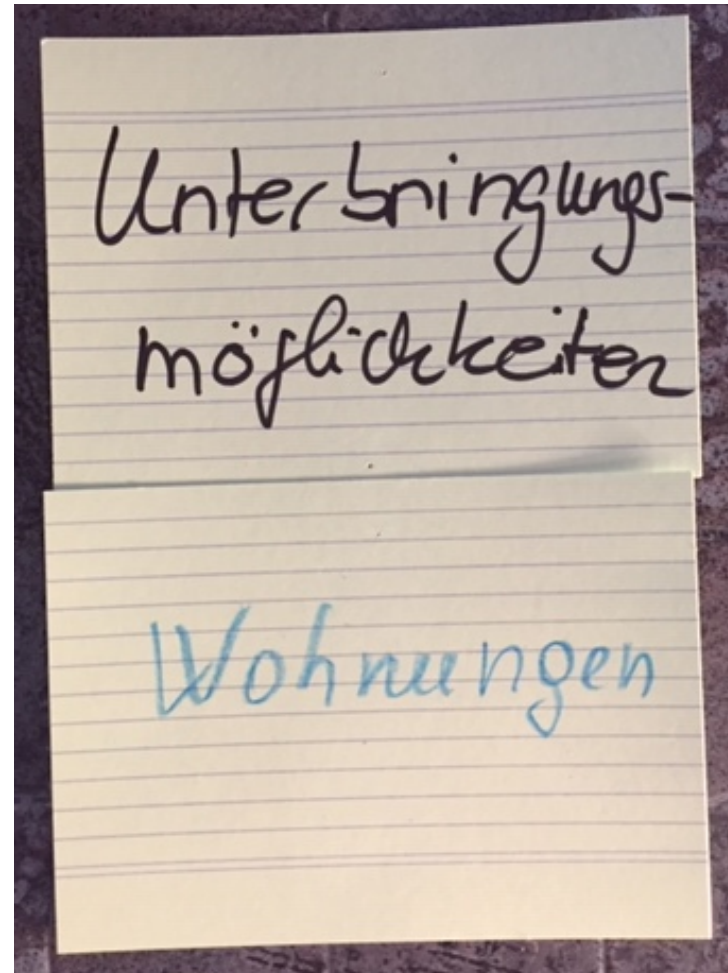 Unterbringungs-
möglichkeiten
Wohnungen